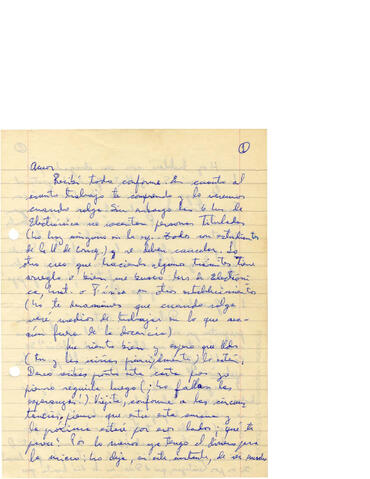 ①
Amor:
Recibí todo conforme. En cuanto al
asunto trabajo te comprendo y lo veremos
cuando salga. Sin embargo las 6 hrs de
Electrónica no necesitan personas tituladas
(no hay ninguno en la
de la U. de Conce) y el deben cancelar. Lo
otro creo que haciendo algunos trámites tiene
arreglo o bien me busco hrs de Electróni
ca, Mat. o Física en otros establecimientos
(No te desanimes que cuando salga
veré medios de trabajar en lo que sea
aún fuera de la docencia)
Me siento bien y espero que Uds
(tú y las niñas principalmente) lo estén.
Deseo recibas pronto esta carta pues yo
pienso seguirla luego (¡No fallan las
esperanzas!). Viejita, conforme a las circuns
tancias, pienso que entre esta semana y
la próxima estaré por esos lados; ¿qué te
parece? Por lo menos ya tengo el dinero para
la micro; no deja, en este instante, de ser